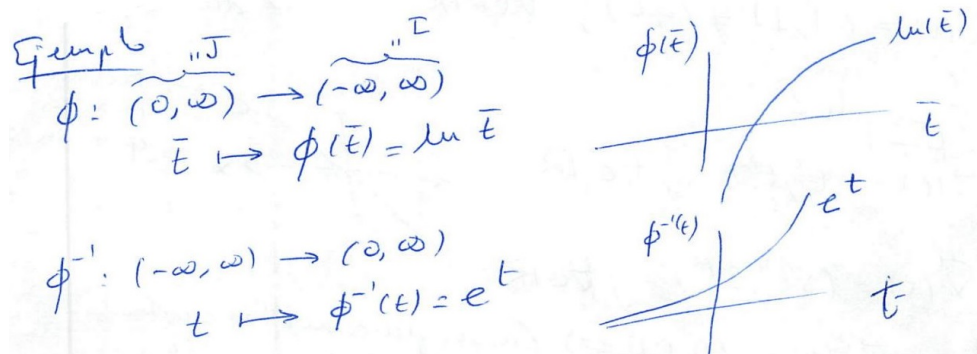 Ejemplo "J "I
ϕ: (0, ∞) → (-∞, ∞)
t̄ ↦ ϕ(t̄) = ln t̄
ϕ⁻¹: (-∞, ∞) → (0, ∞)
t ↦ ϕ⁻¹(t) = e^t
ϕ(t̄)
ln(t̄)
t̄
ϕ⁻¹(t)
e^t
t